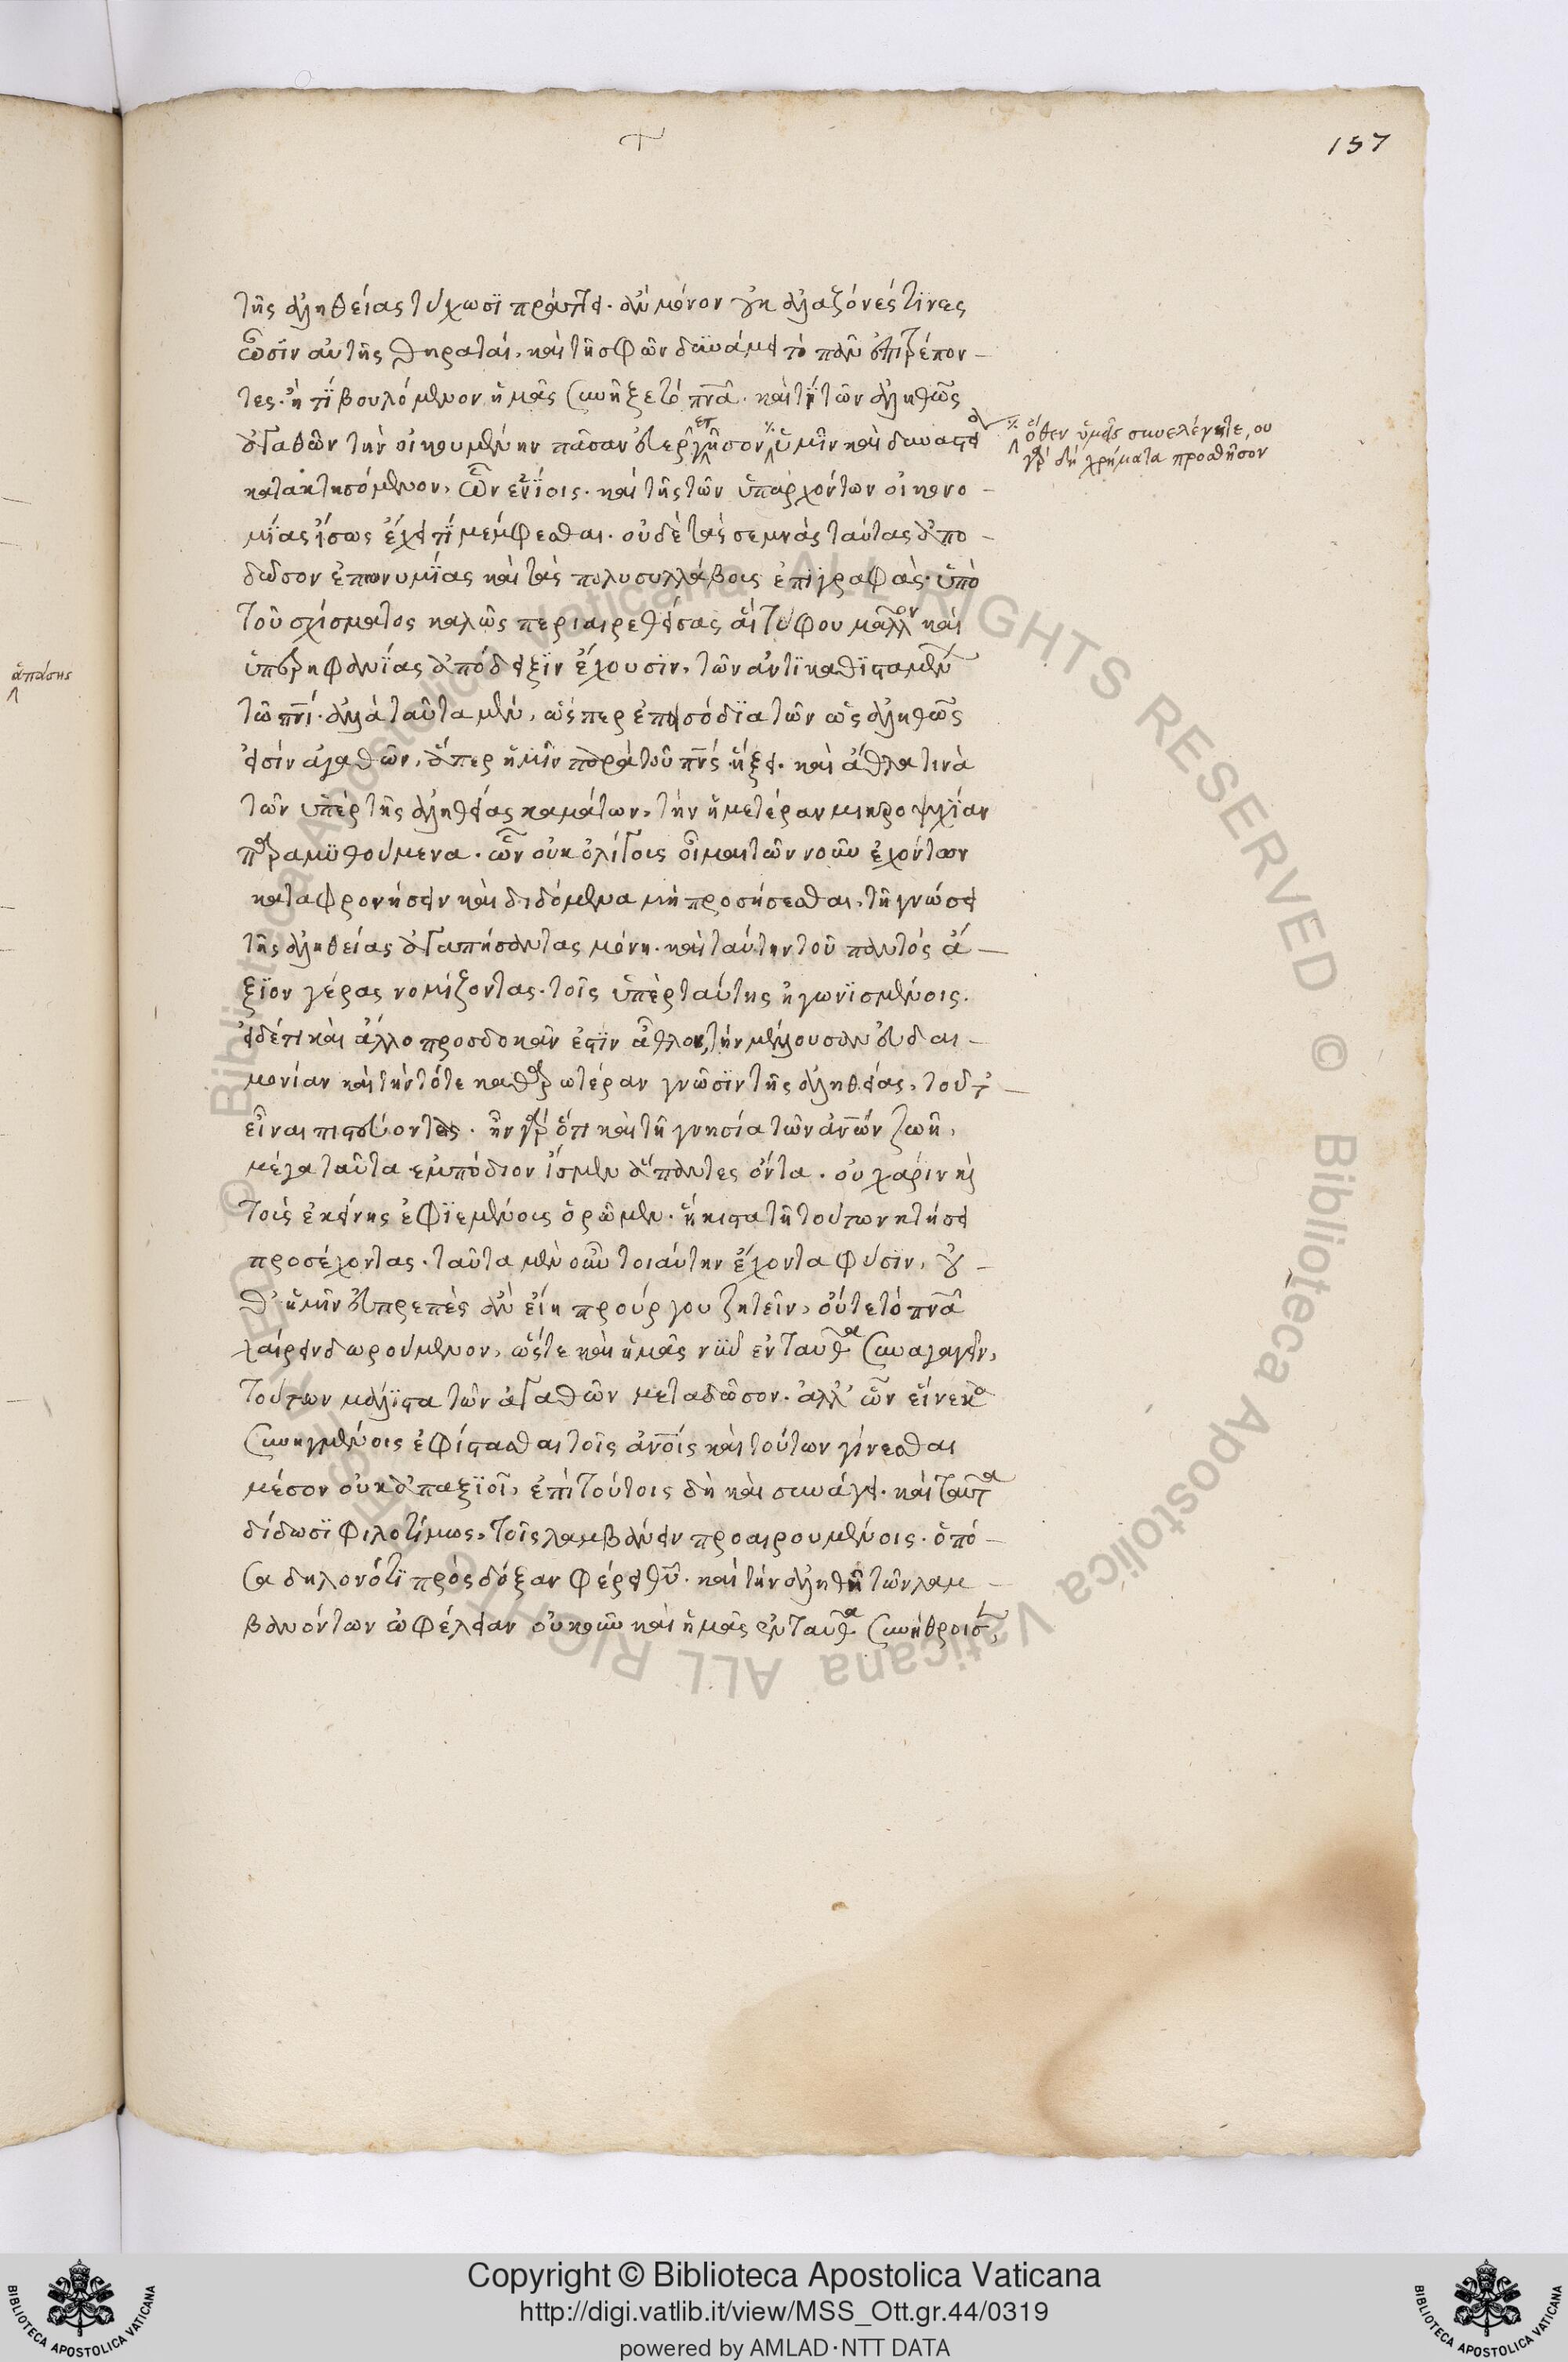 157
τῆς ἀληθείας τύχωσι πράττει. ἂν μόνον μὴ ἀλαζόνές τινες
ὦσιν αὐτῆς θηραταί, καὶ τῇ σφῶν δυνάμει τὸ πᾶν ἐπιτρέπον-
τες. ἢ τί βουλόμενον ἡμᾶς συνῆξε τὸ πνᾶ. καὶ τί τῶν ἀληθῶς
ἀγαθῶν τὴν οἰκουμένην πᾶσαν εὐεργετῆσον ὑμῖν καὶ δυναστ
ὅθεν ὑμᾶς συνελέγητε, ου
γὰρ δὴ χρήματα προσθῆσον
κατακτησόμενον, ὧν ἐνίοις. καὶ τῆς τῶν ὑπαρχόντων οἰκονο-
μίας ἴσως ἔχει τί μέμφεσθαι. οὐδὲ τὰς σεμνὰς ταύτας ἀπο-
δῶσον ἐπωνυμίας καὶ τὰς πολυσυλλάβοις ἐπιγραφάς. ὑπὸ
τοῦ σχίσματος καλῶς περιαιρεθείσας, αἳ τύφου μᾶλλον καὶ
ὑπερηφανίας ἀπόδειξιν ἔχουσιν, τῶν ἀντικαθισταμέν
ἁπάσης
τῶ πνι. ἀλλὰ ταῦτα μὲν, ὥσπερ ἐπεισόδια τῶν ὡς ἀληθῶς
εἰσὶν ἀγαθῶν, ἅπερ ἡμῖν παρὰ τοῦ πνς ἥξει. καὶ ἆθλα τινὰ
τῶν ὑπὲρ τῆς ἀληθείας καμάτων, τὴν ἡμετέραν μικροψυχίαν
παραμυθούμενα. ὧν οὐκ ὀλίγοις οἶμαι τῶν νοῦν ἐχόντων
καταφρονήσειν καὶ διδόμενα μὴ προσήσεσθαι, τῇ γνώσει
τῆς ἀληθείας ἀγαπήσαντας μόνη. καὶ ταύτην τοῦ παντὸς ἄ-
ξιον γέρας νομίζοντας. τοῖς ὑπὲρ ταύτης ἠγωνισμένοις.
εἰ δέ τι καὶ ἄλλο προσδοκᾶν ἐστὶν ἆθλον, τὴν μέλλουσαν εὐδαι-
μονίαν καὶ τὴν τότε καθαρωτέραν γνῶσιν τῆς ἀληθείας, τοῦτ-
εἶναι πιστεύοντας. ἦν γὰρ ὅτι καὶ τῇ γνησία τῶν ἀνων ζωῇ,
μέγα ταῦτα ἐμπόδιον ἴσμεν ἅπαντες ὄντα. οὗ χάριν κ
τοὺς ἐκείνης ἐφιεμένοις ὁρῶμεν. ἥκιστα τῇ τούτων κτήσει
προσέχοντας. ταῦτα μὲν οὖν τοιαύτην ἔχοντα φύσιν, οὔ-
θ' ἡμῖν εὐπρεπὲς ἂν εἴη προύργου ζητεῖν, οὔτε τὸ πνᾶ
χαίρειν δωρούμενον, ὥστε καὶ ἡμᾶς νῦν ἐνταῦθα συναγαγεῖν,
τούτων μάλιστα τῶν ἀγαθῶν μεταδῶσον. ἀλλ' ὧν εἵνεκα
συνηγμένοις ἐφίστασθαι τοῖς ἀνοις καὶ τούτων γίνεσθαι
μέσον οὐκ ἀπαξιοῖ, ἐπὶ τούτοις δὴ καὶ συνάγει. καὶ ταῦτα
δίδωσι φιλοτίμως, τοῖς λαμβάνειν προαιρουμένοις. ὁπό-
σα δηλονότι πρὸς δόξαν φέρει θῦ. καὶ τὴν ἀληθῆ τῶν λαμ-
βανόντων ὠφέλειαν οὐκοῦν καὶ ἡμᾶς ἐνταῦθα συνήθροισ,
Copyright © Biblioteca Apostolica Vaticana
http://digi.vatlib.it/view/MSS_Ott.gr.44/0319
powered by AMLAD·NTT DATA